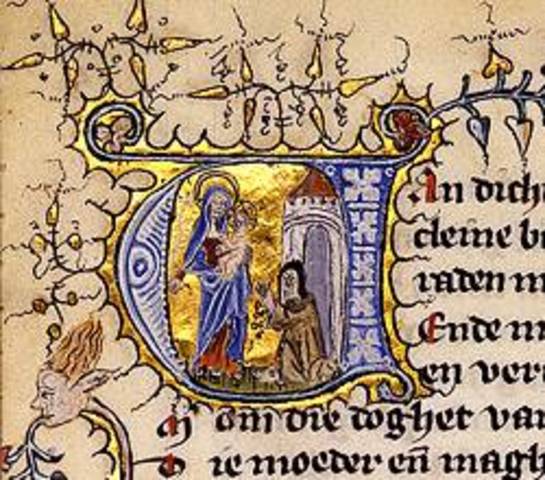 VAn dich
cleine b
raden m
Ende m
en ver
om die doghet va
D ie moeder en̄ magh